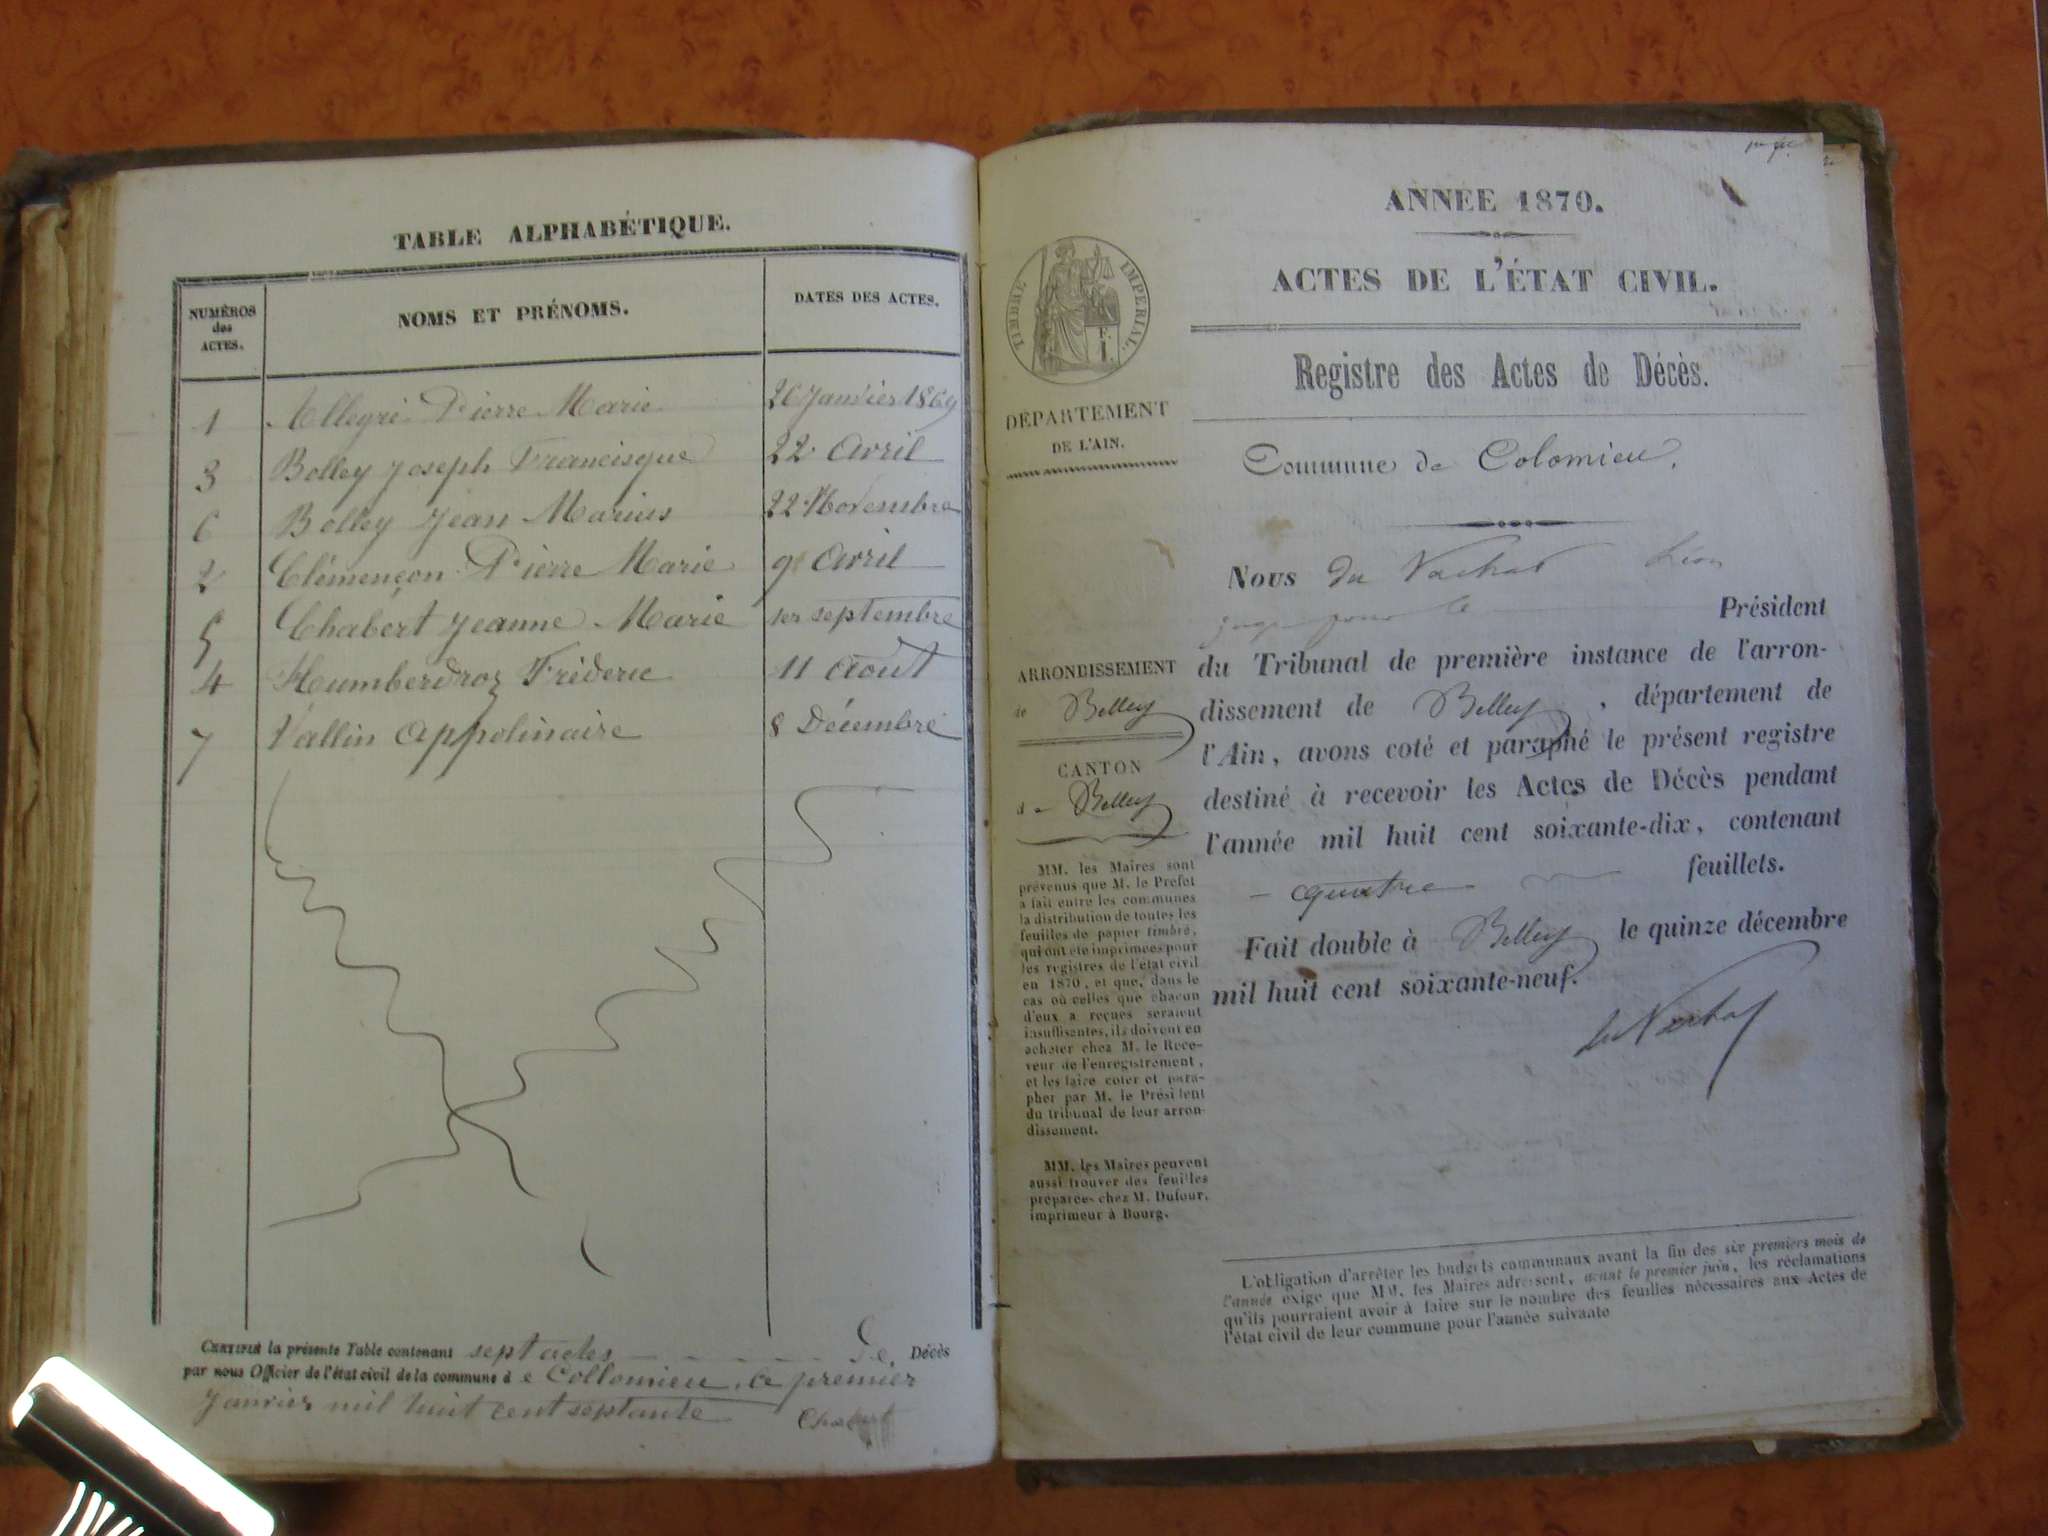 TABLE ALPHABÉTIQUE.
NUMÉROS des ACTES.
NOMS ET PRÉNOMS.
DATES DES ACTES.
1 Allegré Pierre Marie 26 Janvier 1869
3 Bolley Joseph Francisque 22 Avril
6 Bolley Jean Marius 22 Novembre
2 Clémençon Pierre Marie 9 Avril
5 Chabert Jeanne Marie 1er septembre
4 Humberdroz Fréderic 11 Août
7 Vallin Appolinaire 8 Décembre
CERTIFIÉ la présente Table contenant sept actes De Décès
par nous Officier de l'état civil de la commune de Collomieu, ce premier
Janvier mil huit cent septante Chabert
ANNÉE 1870.
ACTES DE L'ÉTAT CIVIL.
TIMBRE IMPERIAL.
Registre des Actes de Décès.
DÉPARTEMENT
DE L'AIN.
Commune de Colomieu.
Nous du Vachat Léon
juge pour le Président
du Tribunal de première instance de l'arron-
dissement de Belley, département de
l'Ain, avons coté et paraphé le présent registre
destiné à recevoir les Actes de Décès pendant
l'année mil huit cent soixante-dix, contenant
quatre feuillets.
Fait double à Belley le quinze décembre
mil huit cent soixante-neuf.
du Vachat
ARRONDISSEMENT
de Belley
CANTON
de Belley
MM. les Maires sont
prévenus que M. le Prefet
a fait entre les communes
la distribution de toutes les
feuilles de papier timbré,
qui ont été imprimées pour
les registres de l'état civil
en 1870, et que, dans le
cas où celles que chacun
d'eux a reçues seraient
insuffisantes, ils doivent en
acheter chez M. le Rece-
veur de l'enregistrement,
et les faire coter et para-
pher par M. le Président
du tribunal de leur arron-
dissement.
MM. les Maires peuvent
aussi trouver des feuilles
préparées chez M. Dufour,
imprimeur à Bourg.
L'obligation d'arrêter les budgets communaux avant la fin des six premiers mois de
l'année exige que MM. les Maires adressent, avant le premier juin, les réclamations
qu'ils pourraient avoir à faire sur le nombre des feuilles nécessaires aux Actes de
l'état civil de leur commune pour l'année suivante